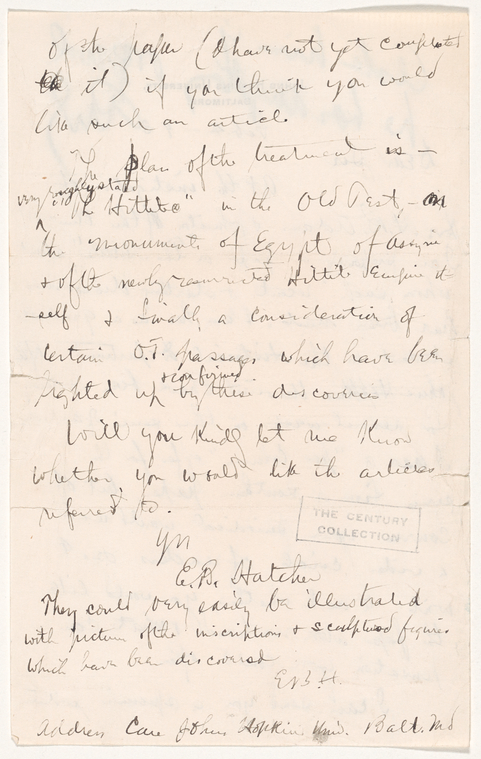 of the paper (I have not yet completed
it) if you think you would
like such an article.
The plan of the treatment is –
very roughly stated
"The Hittites" in the Old Test, – on
the monuments of Egypt, of Assyria
& of the newly reconstructed Hittite Empire it
-self & finally a consideration of
certain O.T. passages which have been
& confirmed
lighted up by these discoveries
Will you kindly let me know
whether you would like the articles
referred to.
THE CENTURY
COLLECTION
Yrs
E.B. Hatcher
They could very easily be illustrated
with pictures of the inscriptions & sculptured figures
which have been discovered
E.B.H.
Address Care Johns Hopkins Univ. Balt. Md